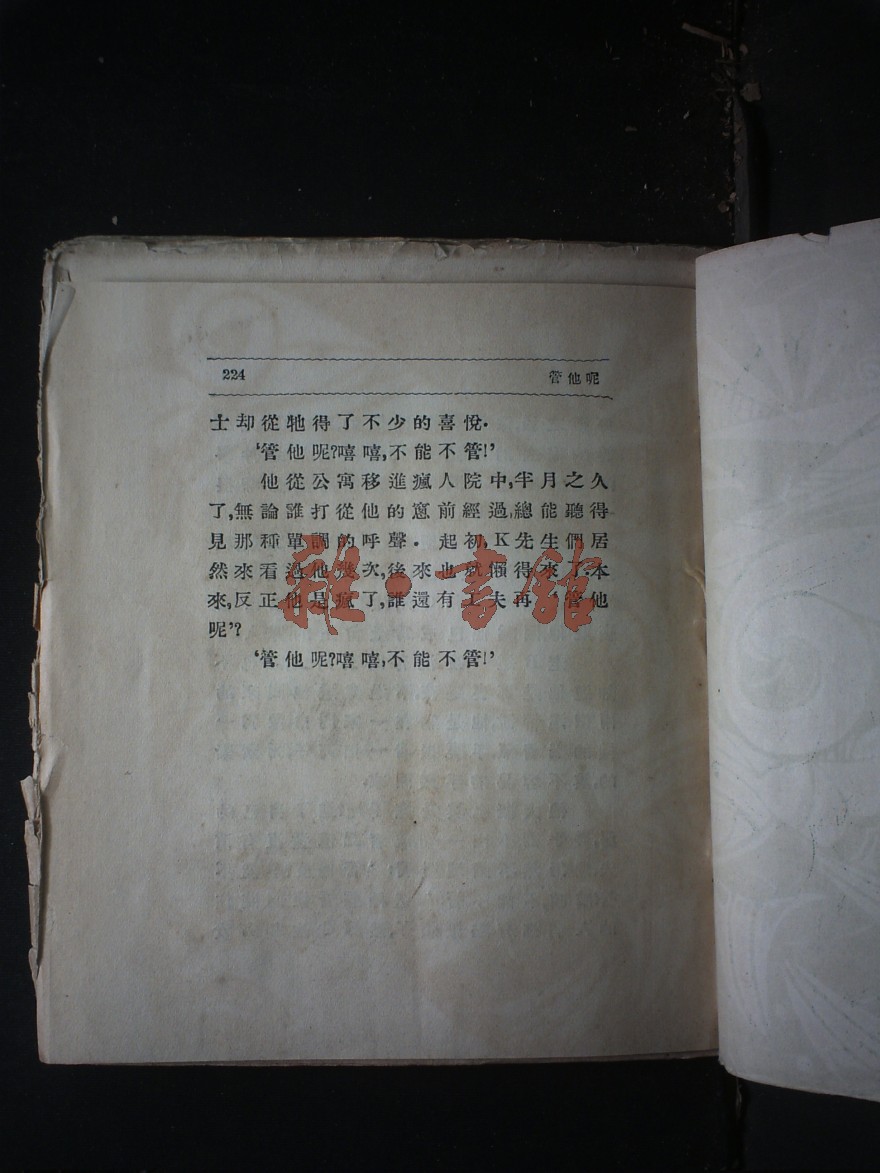 224 管他呢
士却從牠得了不少的喜悅.
‘管他呢?嘻嘻,不能不管!’
他從公寓移進瘋人院中,半月之久
了,無論誰打從他的窻前經過,總能聽得
見那種單調的呼聲. 起初,K先生們居
然來看過他幾次,後來也就懶得來了.本
來,反正他是瘋了,誰還有工夫再‘管他
呢’?
‘管他呢?嘻嘻,不能不管!’
雜·書館